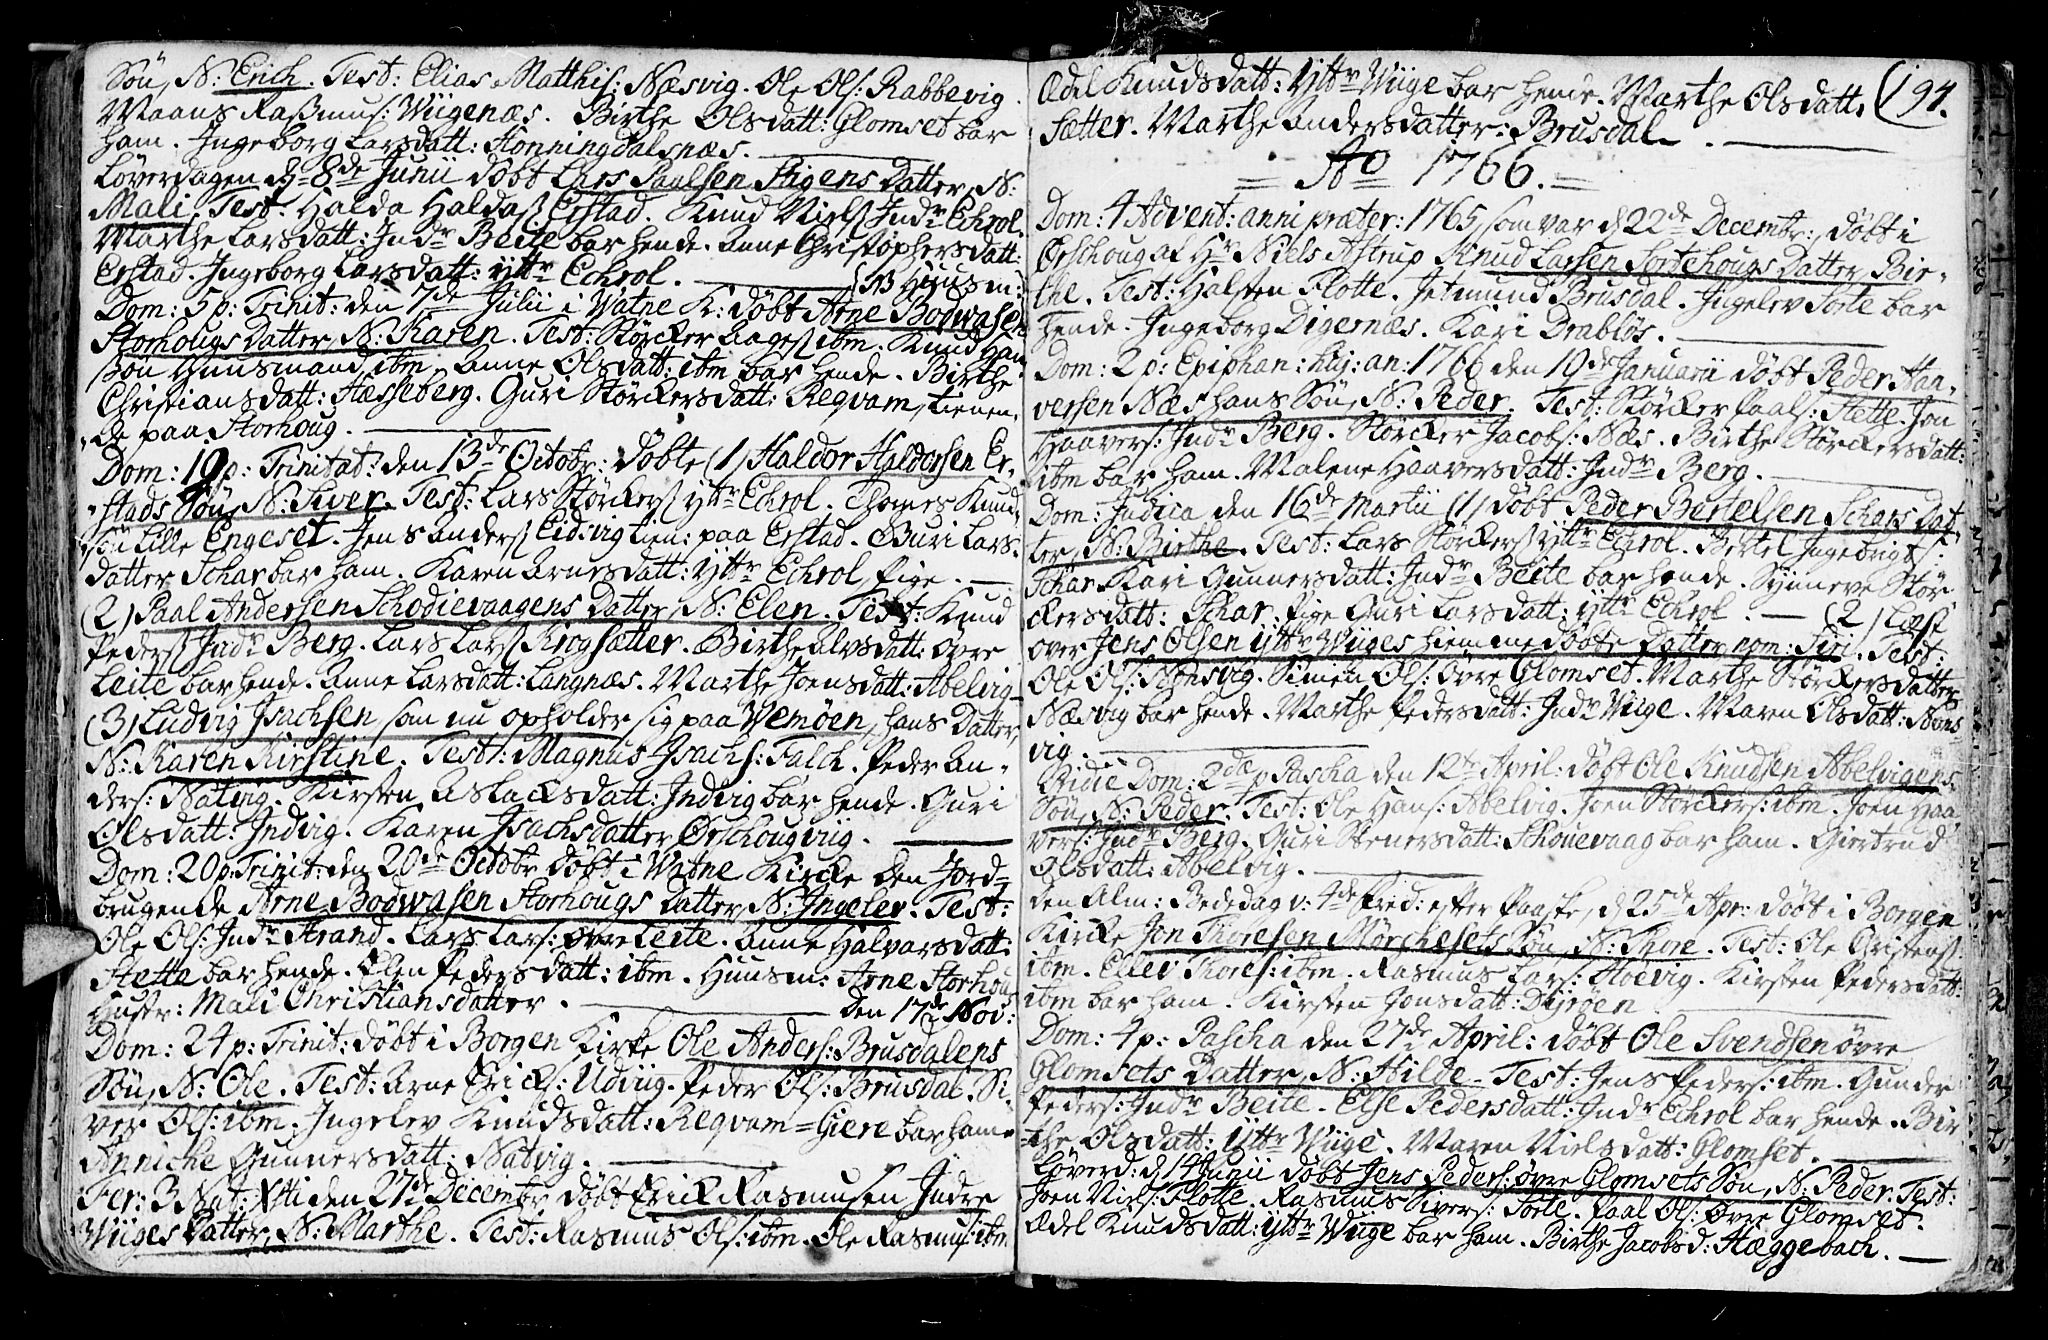 Søn, N: Erich. Test: Elias Matthis: Næsvig. Ole Ols: Rabbevig.
Maans Rasmus: Wiigenæs. Birthe Olsdatt: Glomset bar
ham. Ingeborg Larsdatt: Honningdalsnæs.
Løverdagen d: 8de Junii døbt Lars Paulsen Stigens Datter, N:
Mali. Test: Halda Haldas: Erstad. Knud Niels: Indr Echrol.
Marthe Larsdatt: Indr Beite bar hende. Anne Christophersdatt:
Erstad. Ingeborg Larsdatt: Yttr Echrol. (NB Huusm:
Dom: 5 p: Trinit: den 7de Julii i Watne K: døbt Arne Bodwasen
Storhougs Datter, N: Karen. Test: Størcker Aages: ibm. Knud Han
søn Huusmand ibm. Anne Olsdatt: ibm bar hende. Birthe
Christiansdatt: Hesseberg. Guri Størckersdatt: Reqvam, tienen,
de paa Storhoug.
Dom: 19 p: Trinitat: den 13de Octobr: døbte (1) Haldor Haldorsen Er,
stads Søn, N: Siver. Test: Lars Størckers: Yttr Echrol. Thomes Knud,
søn Lille Engeset. Jens Anders: Eidsvig tien: paa Erstad. Guri Lars,
datter Schar bar ham. Karen Arnesdatt: Yttr Echrol, Pige.
(2) Paal Andersen Schodievaagens Datter, N: Elen. Test: Knud
Peders: Indr Berg. Lars Lars: Krogsætter. Birthe Alvsdatt: øvre
Leite bar hende. Anne Larsdatt: Langnæs. Marthe Joensdatt: Abelvig
(3) Ludvig Isachsen, som nu opholder sig paa Wemøen, hans Datter,
N: Karen Kirstine. Test: Magnus Isachs: Falch. Peder An,
ders: Natvig. Kirsten Aslacksdatt: Indvig bar hende. Guri
Olsdatt: Indvig. Karen Isachsdatter Ørschougviig.
Dom: 20 p: Trinit: den 20de Octobr døbt i Watne Kircke den Jord,
brugende Arne Bodwasen Storhougs Datter, N: Ingelev. Test:
Ole Ols: Indr Strand. Lars Lars: øvre Leite. Anne Halvarsdatt:
Stette bar hende. Elen Pedersdatt: ibm. Huusm: Arne Storhoug
Huster: Mali Christiansdatter. den 17de Nov:
Dom: 24 p: Trinit: døbt i Borgen Kirke Ole Anders: Brusdalens
Søn, N: Ole. Test: Arne Erics: Udviig. Peder Ols: Brusdal. Si,
ver Ols: ibm. Ingelev Knudsdatt: Reqvam=Giere bar ham.
Anniche Gunnersdatt: Natvig.
Fer: 3 Nat: Xti den 27de Decembr døbt Erick Rasmusen Indre
Wiiges Datter, N: Marthe. Test: Rasmus Ols: ibm. Ole Rasmus: ibm
Ædel Knudsdatt: Yttr Wiige bar hende. Marthe Olsdatt: (194.
Sætter. Marthe Andersdatter: Brusdal.
= Ao 1766. =
Dom: 4 Advent: anni præter: 1765, som var d: 22de Decembr:, døbt i
Ørschoug af Hr Niels Astrup Knud Larsen Sortehougs Datter Bir,
the. Test: Halsten Flotte. Jetmund Brusdal. Ingelev Sorte bar
hende. Ingeborg Digernæs. Kari Drabløs.
Dom: 2 p: Epiphan: huj: an: 1766 den 19de Januarii døbt Peder Haa,
versen Næs hans Søn, N: Peder. Test: Størcker Paals: Stette. Jon
Haavers: Indr Berg. Størcker Jacobs: Næs. Birthe Størckersdatt:
ibm bar ham. Malene Haaversdatt: Indr Berg.
Dom: Judica den 16de Martii (1) døbt Peder Bertelsen Schars Dat
ter, N: Birthe. Test: Lars Størckers: Yttr Echrol. Bertel Ingebrigts:
Schar. Kari Gunnersdatt: Indr Beite bar hende. Synneve Stør
ckersdatt: Schar. Pige Guri Larsdatt: Yttr Echrol. (2) Læst
over Jens Olsen Yttr Wiiges hiemmedøbte Datter nom: Siri. Test:
Ole Ols: Nonsvig. Simen Ols: Øvre Glomset. Marthe Størckersdatter
Nædvig bar hende. Marthe Pedersdatt: Indr Wiige. Maren Olsdatt: Nons
vig.
Pridie Dom: 2dæ p Pascha den 12te April: døbt Ole Knudsen Abelvigens
Søn, N: Peder. Test: Ole Hans: Abelvig. Joen Størckers: ibm. Joen Haa
vers: Indr Berg. Guri Stenersdatt: Schouevaag bar ham. Giertrud
Olsdatt: Abelvig.
den Alm: Bededag v: 4de Fred: efter Paaske, d: 25de Apr: døbt i Borgen
Kircke Jon Thoresen Mørchesets Søn, N: Thore. Test: Ole Christens:
ibm. Ellev Thores: ibm. Rasmus Lars: Hoevig. Kirsten Pedersdatt:
ibm bar ham. Kirsten Jonsdatt: Dyrøen
Dom: 4 p: Pascha den 27de April: døbt Ole Svendsen øvre
Glomsets Datter, N: Hilde. Test: Jens Peders: ibm. Gunder
Peders: Indr Beite. Else Pedersdatt: Indr Echrol bar hende. Bir
the Olsdatt: Yttr Wiige. Maren Nielsdatt: Glomset.
Løverd: d: 14 Junii døbt Jens Peders: øvre Glomsets Søn, N: Peder. Test:
Joen Niels: Flotte. Rasmus Sivers: Sorte. Paal Ols: Øvre Glomset.
Ædel Knudsdatt: Yttr Wiige bar ham. Birthe Jacobsd: Hæggebach.